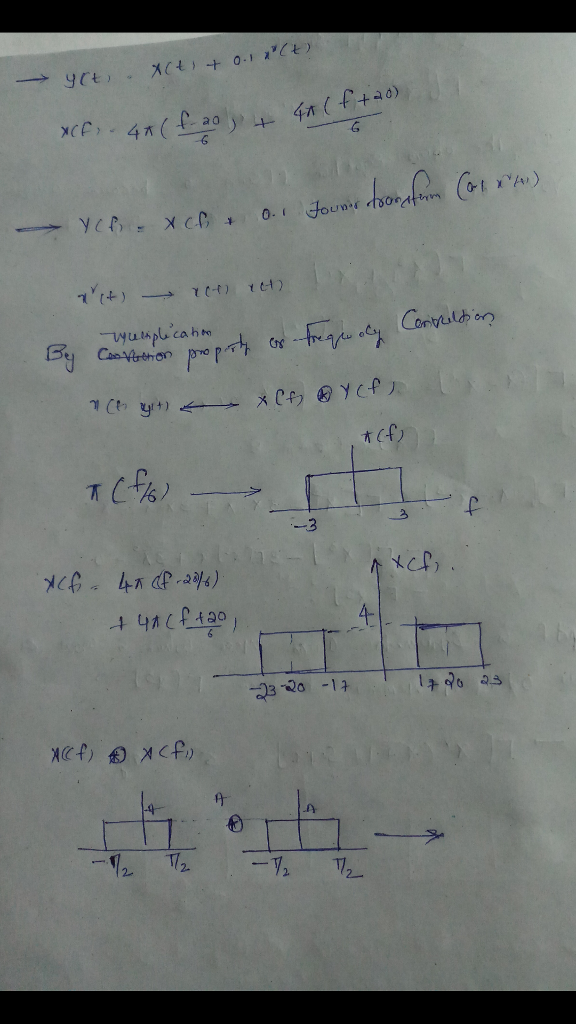 → y(t) = x(t) + 0.1 x²(t)
x(f) = 4π(f-20/6) + 4π(f+20)/6
→ Y(f) = X(f) + 0.1 Fourier transform (0.1 x²(t))
x²(t) → x(t) x(t)
multiplication
By property or frequency Convultion
x(t) y(t) ⟷ X(f) ⊛ Y(f)
π(f)
π(f/6) →
-3 3 f
X(f) = 4π(f-20/6) X(f)
+ 4π(f+20/6) 4
-23 -20 -17 17 20 23
X(f) ⊛ X(f)
A A ⊛ A →
-T/2 T/2 -T/2 T/2